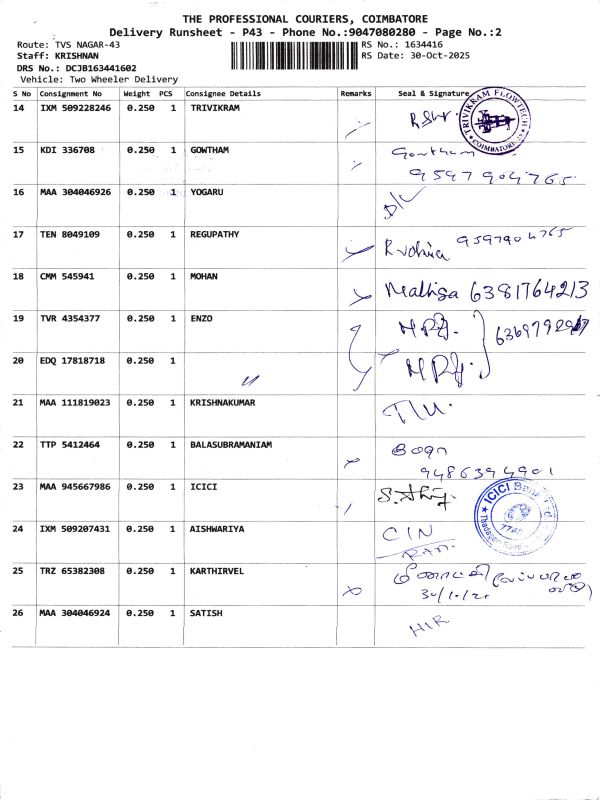 THE PROFESSIONAL COURIERS, COIMBATORE
Delivery Runsheet - P43 - Phone No.:9047080280 - Page No.:2
Route: TVS NAGAR-43
Staff: KRISHNAN
DRS No.: DCJB163441602
Vehicle: Two Wheeler Delivery
RS No.: 1634416
RS Date: 30-Oct-2025
S No Consignment No Weight PCS Consignee Details Remarks Seal & Signature
14 IXM 509228246 0.250 1 TRIVIKRAM
TRIVIKRAM FLOWTECH COIMBATORE
15 KDI 336708 0.250 1 GOWTHAM Gowtham
9597904765
16 MAA 304046926 0.250 1 YOGARU D/L
17 TEN 8049109 0.250 1 REGUPATHY 9597904765
18 CMM 545941 0.250 1 MOHAN Malliga 6381764213
19 TVR 4354377 0.250 1 ENZO
20 EDQ 17818718 0.250 1
21 MAA 111819023 0.250 1 KRISHNAKUMAR
22 TTP 5412464 0.250 1 BALASUBRAMANIAM
9486394901
23 MAA 945667986 0.250 1 ICICI
ICICI Bank Ltd
24 IXM 509207431 0.250 1 AISHWARIYA CIN
25 TRZ 65382308 0.250 1 KARTHIRVEL
26 MAA 304046924 0.250 1 SATISH HIR